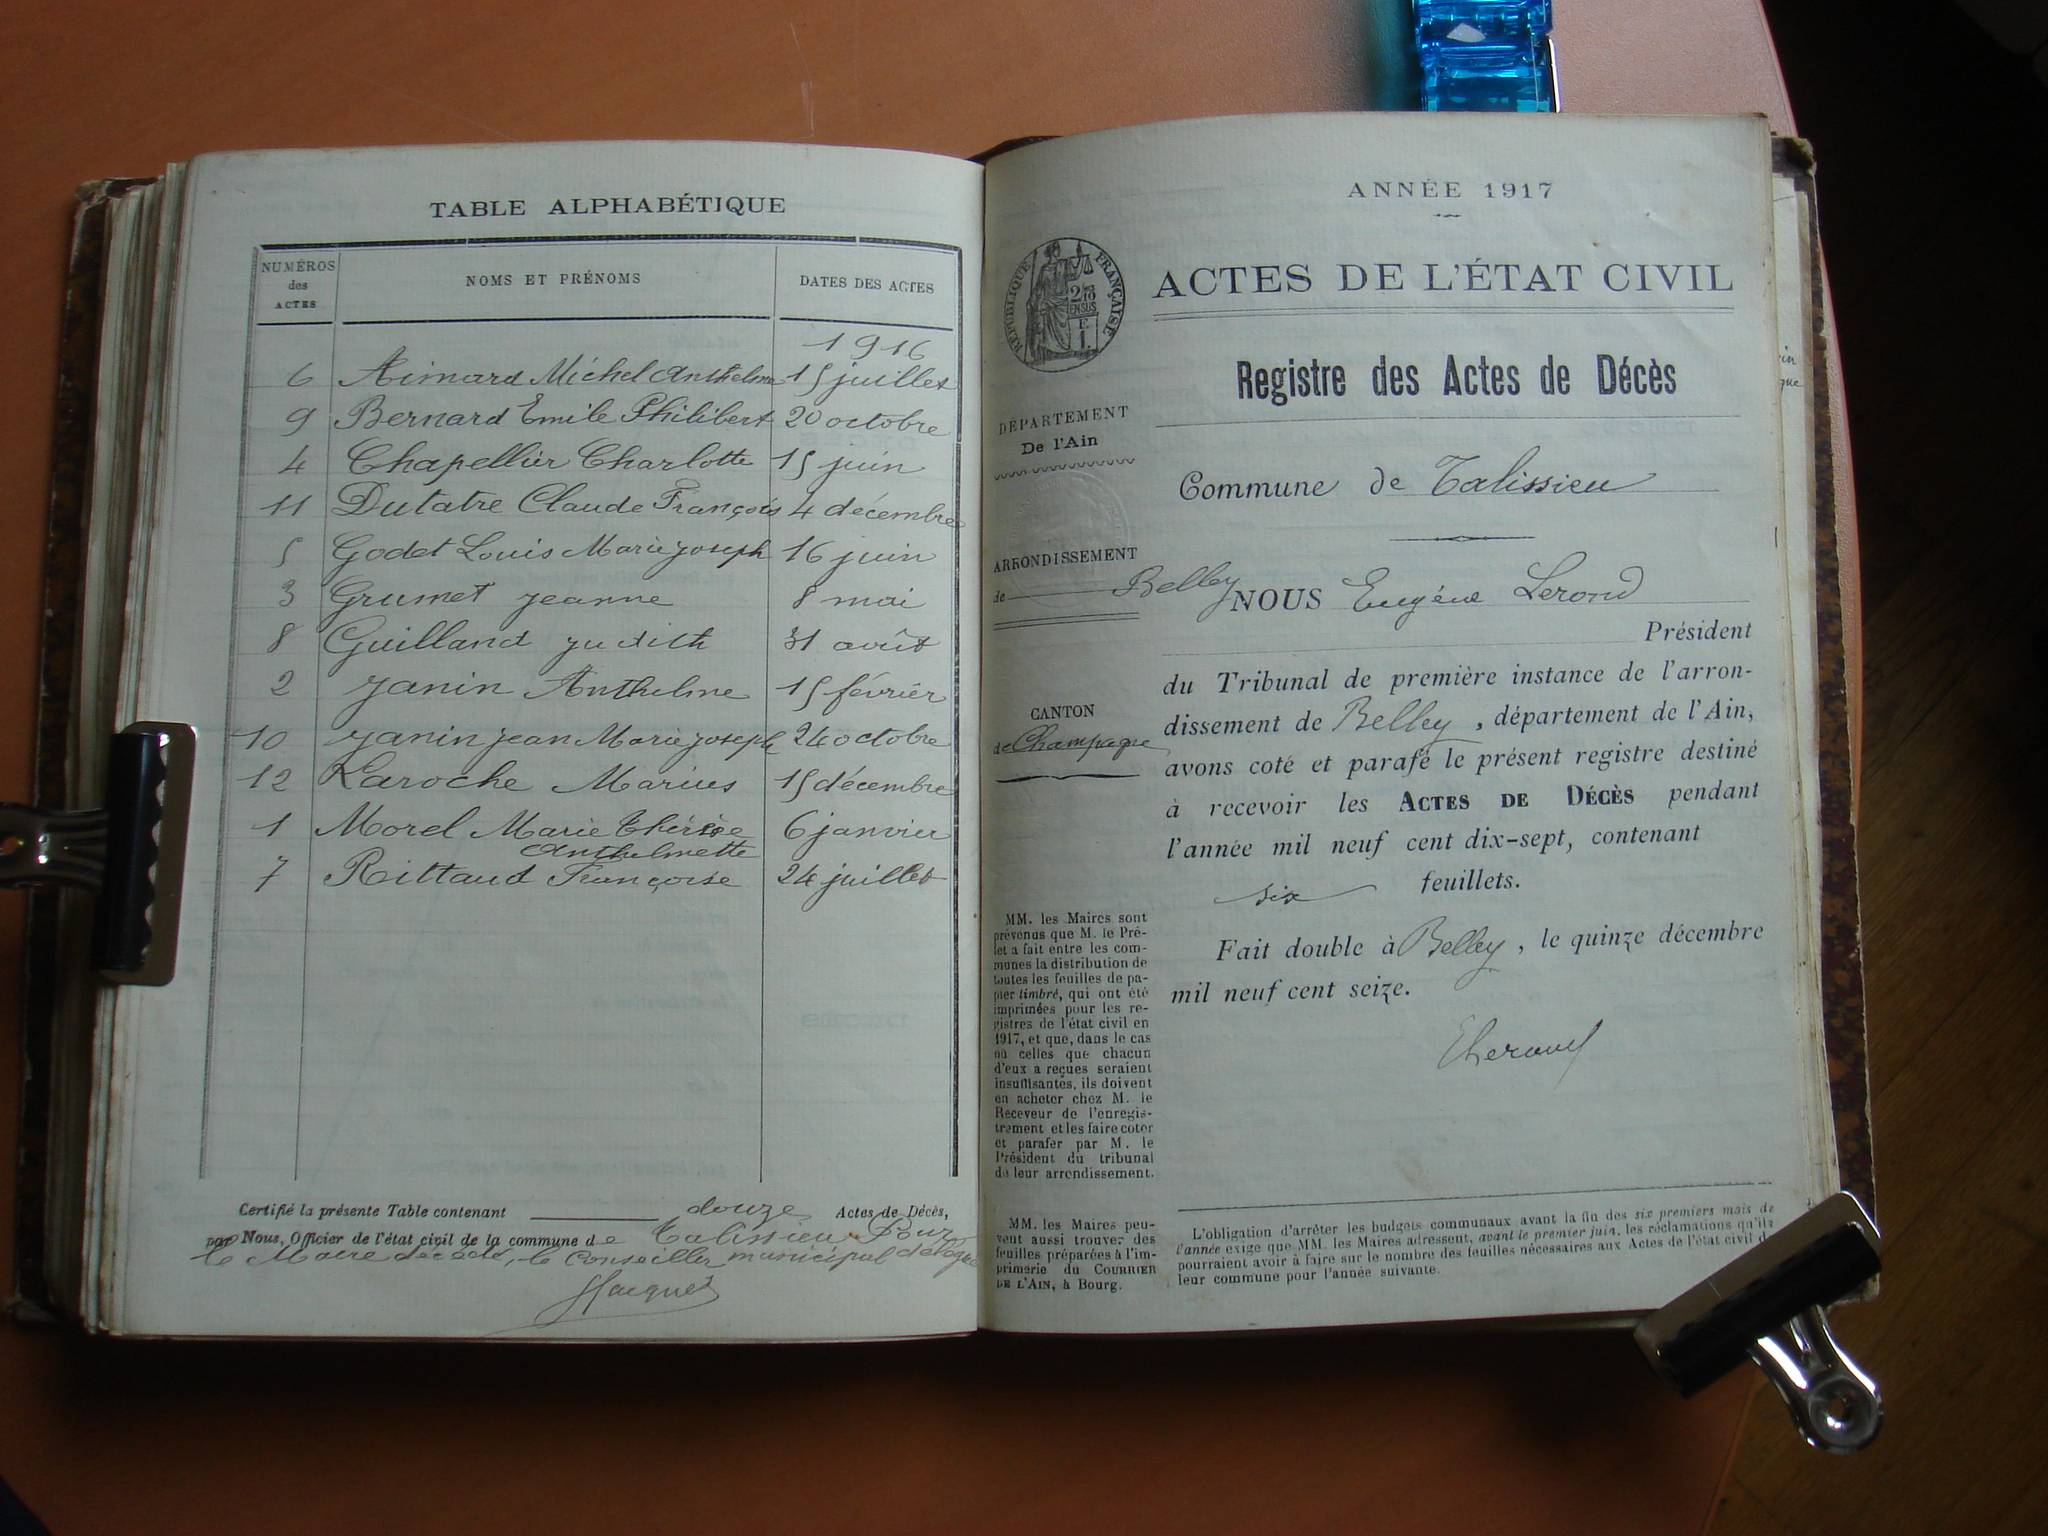 TABLE ALPHABÉTIQUE
NUMÉROS des ACTES NOMS ET PRÉNOMS DATES DES ACTES
1916
6 Aimard Michel Anthelme 15 juillet
9 Bernard Emile Philibert 20 octobre
4 Chapellier Charlotte 15 juin
11 Dutatre Claude François 4 décembre
5 Godet Louis Marie Joseph 16 juin
3 Grumet Jeanne 8 mai
8 Guilland Judith 31 août
2 Janin Anthelme 15 février
10 Janin Jean Marie Joseph 24 octobre
12 Laroche Marius 15 décembre
1 Morel Marie Thérèse 6 janvier
Anthelmette
7 Rittaud Françoise 24 juillet
Certifié la présente Table contenant douze Actes de Décès,
par Nous, Officier de l'état civil de la commune de Talissieu. Pour
le Maire décédé, le Conseiller municipal délégué
Jacquet
ANNÉE 1917
RÉPUBLIQUE FRANÇAISE
ACTES DE L'ÉTAT CIVIL
Registre des Actes de Décès
DÉPARTEMENT
De l'Ain
Commune de Talissieu
ARRONDISSEMENT
de Belley
NOUS Eugène Lerond
Président
du Tribunal de première instance de l'arron-
dissement de Belley, département de l'Ain,
avons coté et parafé le présent registre destiné
à recevoir les ACTES DE DÉCÈS pendant
l'année mil neuf cent dix-sept, contenant
six feuillets.
Fait double à Belley, le quinze décembre
mil neuf cent seize.
CANTON
de Champagne
MM. les Maires sont
prévenus que M. le Pré-
fet a fait entre les com-
munes la distribution de
toutes les feuilles de pa-
pier timbré, qui ont été
imprimées pour les re-
gistres de l'état civil en
1917, et que, dans le cas
où celles que chacun
d'eux a reçues seraient
insuffisantes, ils doivent
en acheter chez M. le
Receveur de l'enregis-
trement et les faire coter
et parafer par M. le
Président du tribunal
de leur arrondissement.
MM. les Maires peu-
vent aussi trouver des
feuilles préparées à l'im-
primerie du COURRIER
DE L'AIN, à Bourg.
L'obligation d'arrêter les budgets communaux avant la fin des six premiers mois de
l'année exige que MM. les Maires adressent, avant le premier juin, les réclamations qu'ils
pourraient avoir à faire sur le nombre des feuilles nécessaires aux Actes de l'état civil d
leur commune pour l'année suivante.